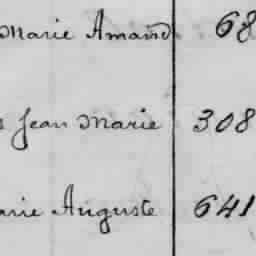 Marie Amand 68
Jean Marie 308
arie Auguste 641